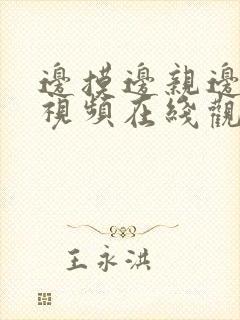 邊摸邊親邊
視頻在綫觀
王永洪